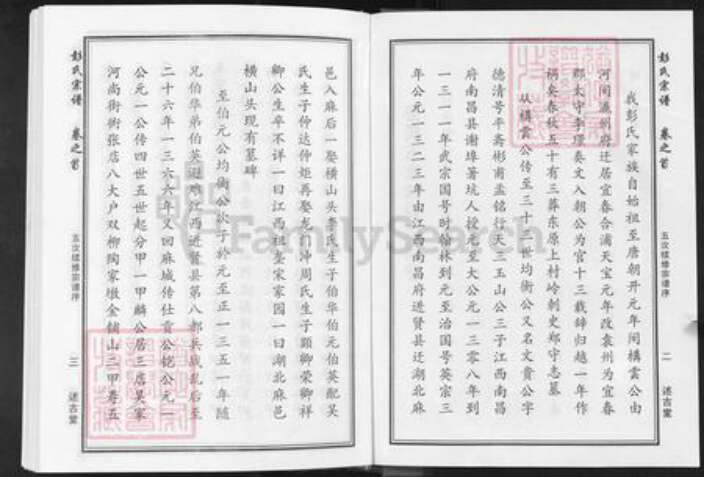 彭氏宗谱 卷之首 五次续修宗谱序 二 述古堂
我彭氏家族自始祖至唐朝开元年间构云公由
河间瀛州府迁居宜春合浦天宝元年改袁州为宜春
郡太守李璟奏文入朝公为官十三载辞归越一年作
祸矣春秋五十有三葬东原上村岭刺史郑守志墓
从构云公传至三十一世均衡公又名文贵公字
德清号平斋彬甫孟铭行天三玉山公三子江西南昌
府南昌县谢埠箬坑人授元至大公元一三零八年到
一三一一年武宗国号时翰林到元至治国号英宗三
年公元一三二三年由江西南昌府进贤县迁湖北麻
邑入麻后一娶横山头李氏生子伯华伯元伯英配吴
氏生子仲达仲炬再娶龙门冲周氏生子顕卿荣卿祥
卿公生卒不详一曰江西祖茔宋家园一曰湖北麻邑
横山头现有墓碑
至伯元公均衡公次子於元至正一三五一年随
兄伯华弟伯英避难江西进贤县第八都兵戏乱后至
二十六年一三六六年又回麻城传仕贡公铠公元一
公元一公传四世五世起分甲一甲麟公居三店吴家
河尚街街张店八大户双柳陶家墩金铺山二甲寿五
彭氏宗谱 卷之首 五次续修宗谱序 三 述古堂
FamilySearch